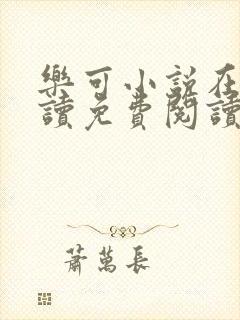 樂可小說在
讀免費閱讀
蕭萬長